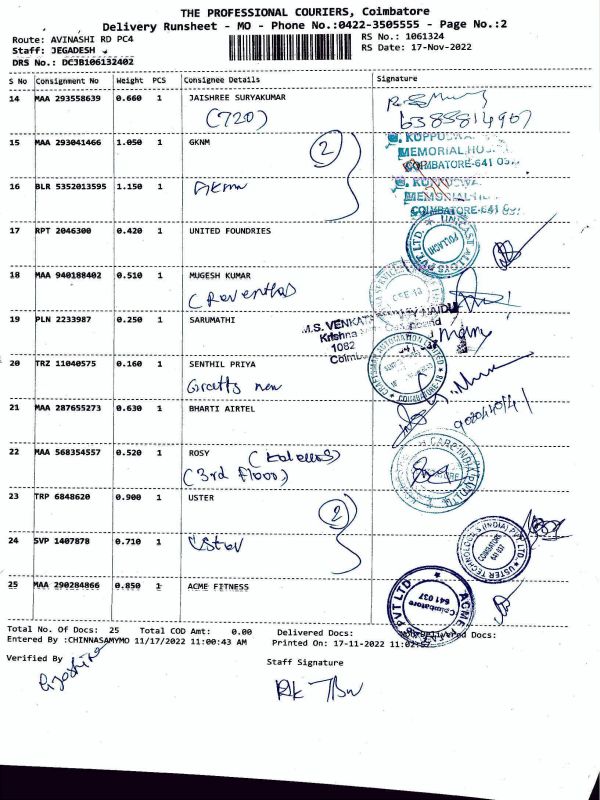 THE PROFESSIONAL COURIERS, Coimbatore
Delivery Runsheet - MO - Phone No.:0422-3505555 - Page No.:2
Route: AVINASHI RD PC4
Staff: JEGADESH
DRS No.: DCJB106132402
RS No.: 1061324
RS Date: 17-Nov-2022
S No Consignment No Weight PCS Consignee Details Signature
14 MAA 293558639 0.660 1 JAISHREE SURYAKUMAR
(720)
6385814907
15 MAA 293041466 1.050 1 GKNM
2
MEMORIAL
COIMBATORE-641
16 BLR 5352013595 1.150 1
COIMBATORE-641
17 RPT 2046300 0.420 1 UNITED FOUNDRIES
POLLACHI
18 MAA 940188402 0.510 1 MUGESH KUMAR
(Revathas
19 PLN 2233987 0.250 1 SARUMATHI
M.S. VENKAT
Krishna
1082
20 TRZ 11040575 0.160 1 SENTHIL PRIYA
CRAFTSMAN AUTOMATION LIMITED
COIMBATORE-18
21 MAA 287655273 0.630 1 BHARTI AIRTEL
22 MAA 568354557 0.520 1 ROSY
(3rd floor)
23 TRP 6848620 0.900 1 USTER
2
24 SVP 1407878 0.710 1 Uster
USTER TECHNOLOGIES (INDIA) PVT LTD.
COIMBATORE
25 MAA 290284866 0.850 1 ACME FITNESS
ACME
PVT LTD
Coimbatore
641 037
Total No. Of Docs: 25 Total COD Amt: 0.00 Delivered Docs: Undelivered Docs:
Entered By :CHINNASAMYMO 11/17/2022 11:00:43 AM Printed On: 17-11-2022
Verified By
Staff Signature